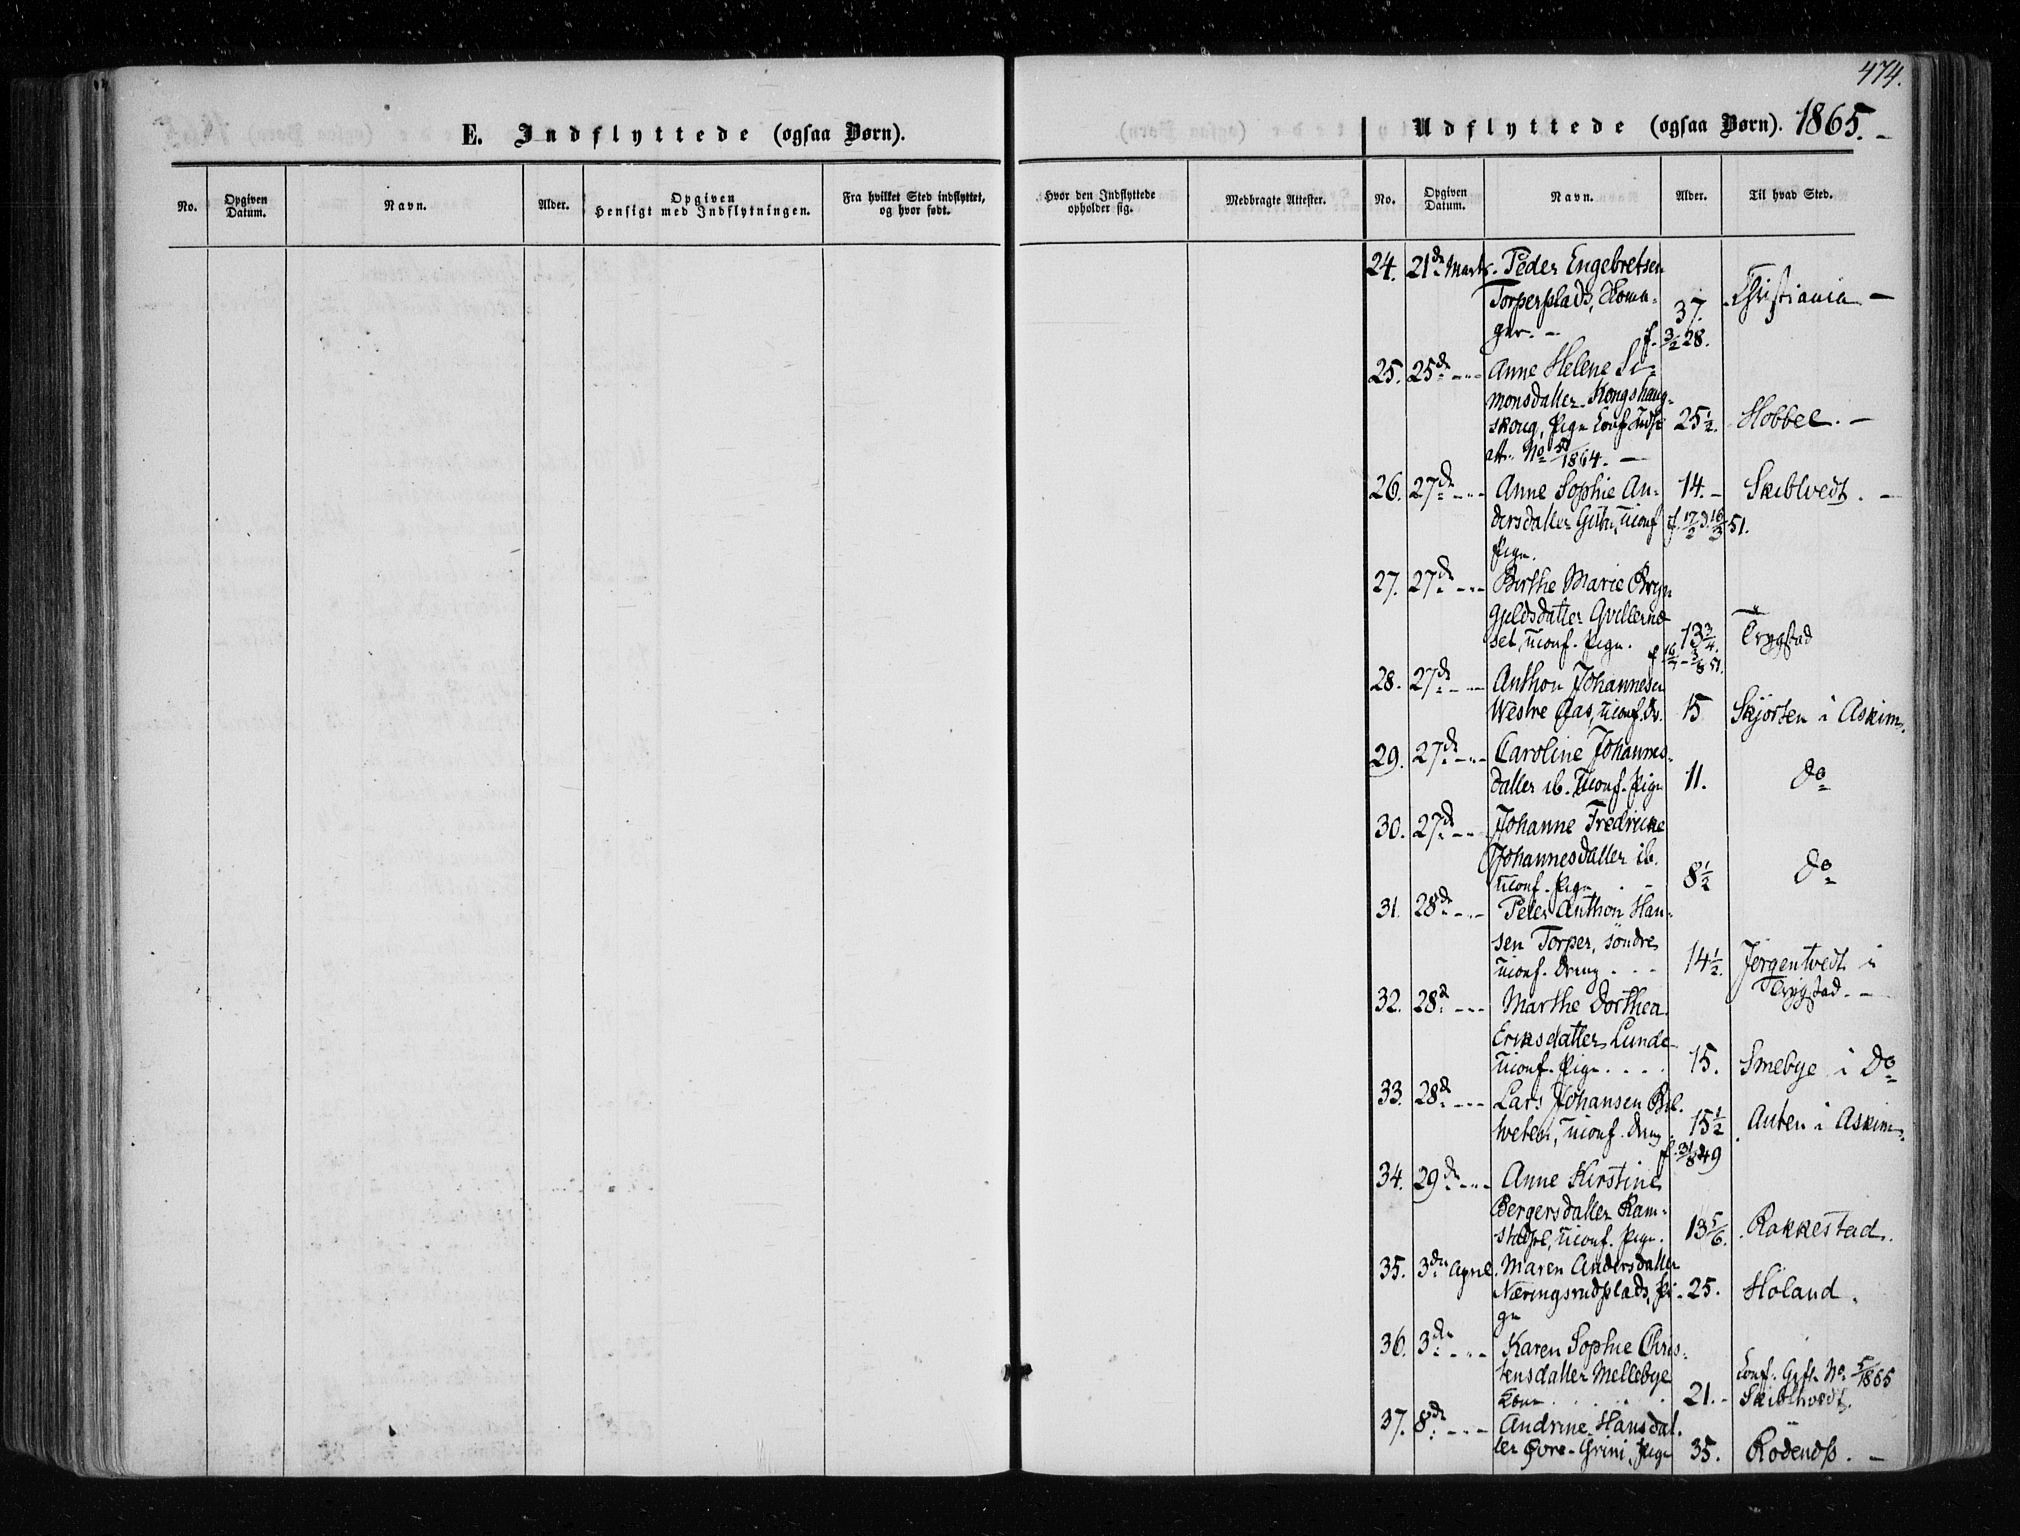 474.
E. Indflyttede (ogsaa Børn).
Udflyttede (ogsaa Børn). 1865. -
No.
Opgiven Datum.
Navn.
Alder.
Opgiven Hensigt med Indflytningen.
Fra hvilket Sted indflyttet, og hvor født.
Hvor den Indflyttede opholder sig.
Medbragte Attester.
No.
Opgiven Datum.
Navn.
Alder.
Til hvad Sted.
24. 21de Marts. Peder Engebretsen
Torperplads, Homa- 37. Christiania -
ger. - f. 3/2 28.
25. 25de -"- Anne Helene Si-
monsdatter Kongshaug-
skoug, Pige Conf. 25 1/2. Hobbel. -
att. No 1864. -
26. 27de -"- Anne Sophie An- 14. - Skiblvedt. -
dersdatter uconf f. 17/2 d. 16/3 51.
Pige.
27. 27de -"- Birthe Marie Bryn-
gjeldsdatter Gvillerne
set, uconf. Pige. 13 3/4. Trygstad
28. 27de -"- Anthon Johannesen
Westre Aas, uconf. Dr. 15 Skjørten i Askim.
29. 27de -"- Caroline Johannes-
datter ib. Uconf. Pige 11. do
30. 27de -"- Johanne Fredrikke
Johannesdatter ib.
uconf. Pige 8 1/2 do
31. 28de -"- Peter Anthon Han-
sen Torper, søndre
uconf. Dreng . . . 14 1/2. Jørgentvedt i
Trygstad. -
32. 28de -"- Marthe Dorthea
Eriksdatter Lunde
uconf. Pige . . . . 15. Smebye i Do
33. 28de -"- Lars Johansen
uconf. Dreng 15 1/2 Auten i Askim.
f. 31/8 49
34. 29de -"- Anne Kirstine
Bergersdatter Ram-
stad uconf. Pige. 13 5/6. Rakkestad.
35. 3die April. Maren Andersdatter
Næringsrudplads, Pi- 25. Høland.
ge
36. 3die -"- Karen Sophie Chris-
tensdatter Mellebye Conf. Gift. No 5/1865
Kone . . . . . 21. - Skiblhvedt.
37. 8de -"- Andrine Hansdat-
ter Øvre-Grini, Pige 35. Rødends. -